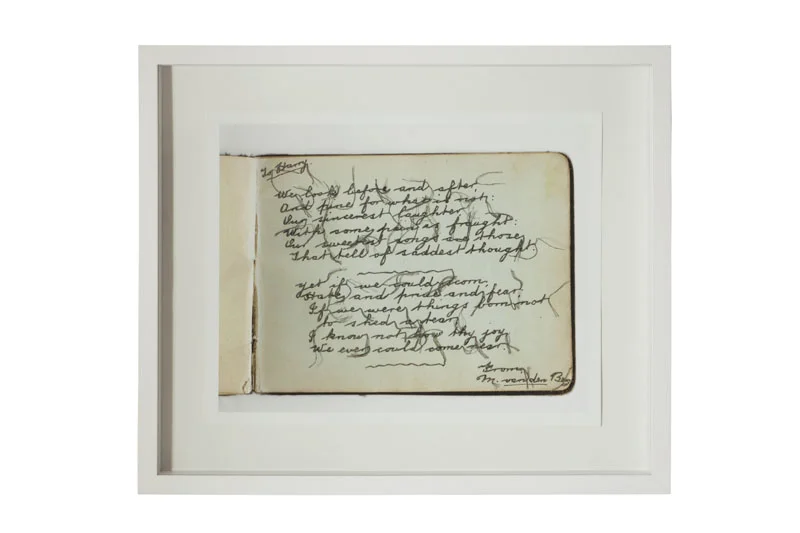 To Harry.
We look before and after,
And pine for what is not:
Our sincerest laughter
With some pain is fraught:
Our sweetest songs are those
That tell of saddest thought.
Yet if we could scorn,
Hate, and pride and fear,
If we were things born not
to shed a tear,
I know not how thy joy
We ever could come near.
From
M. van den